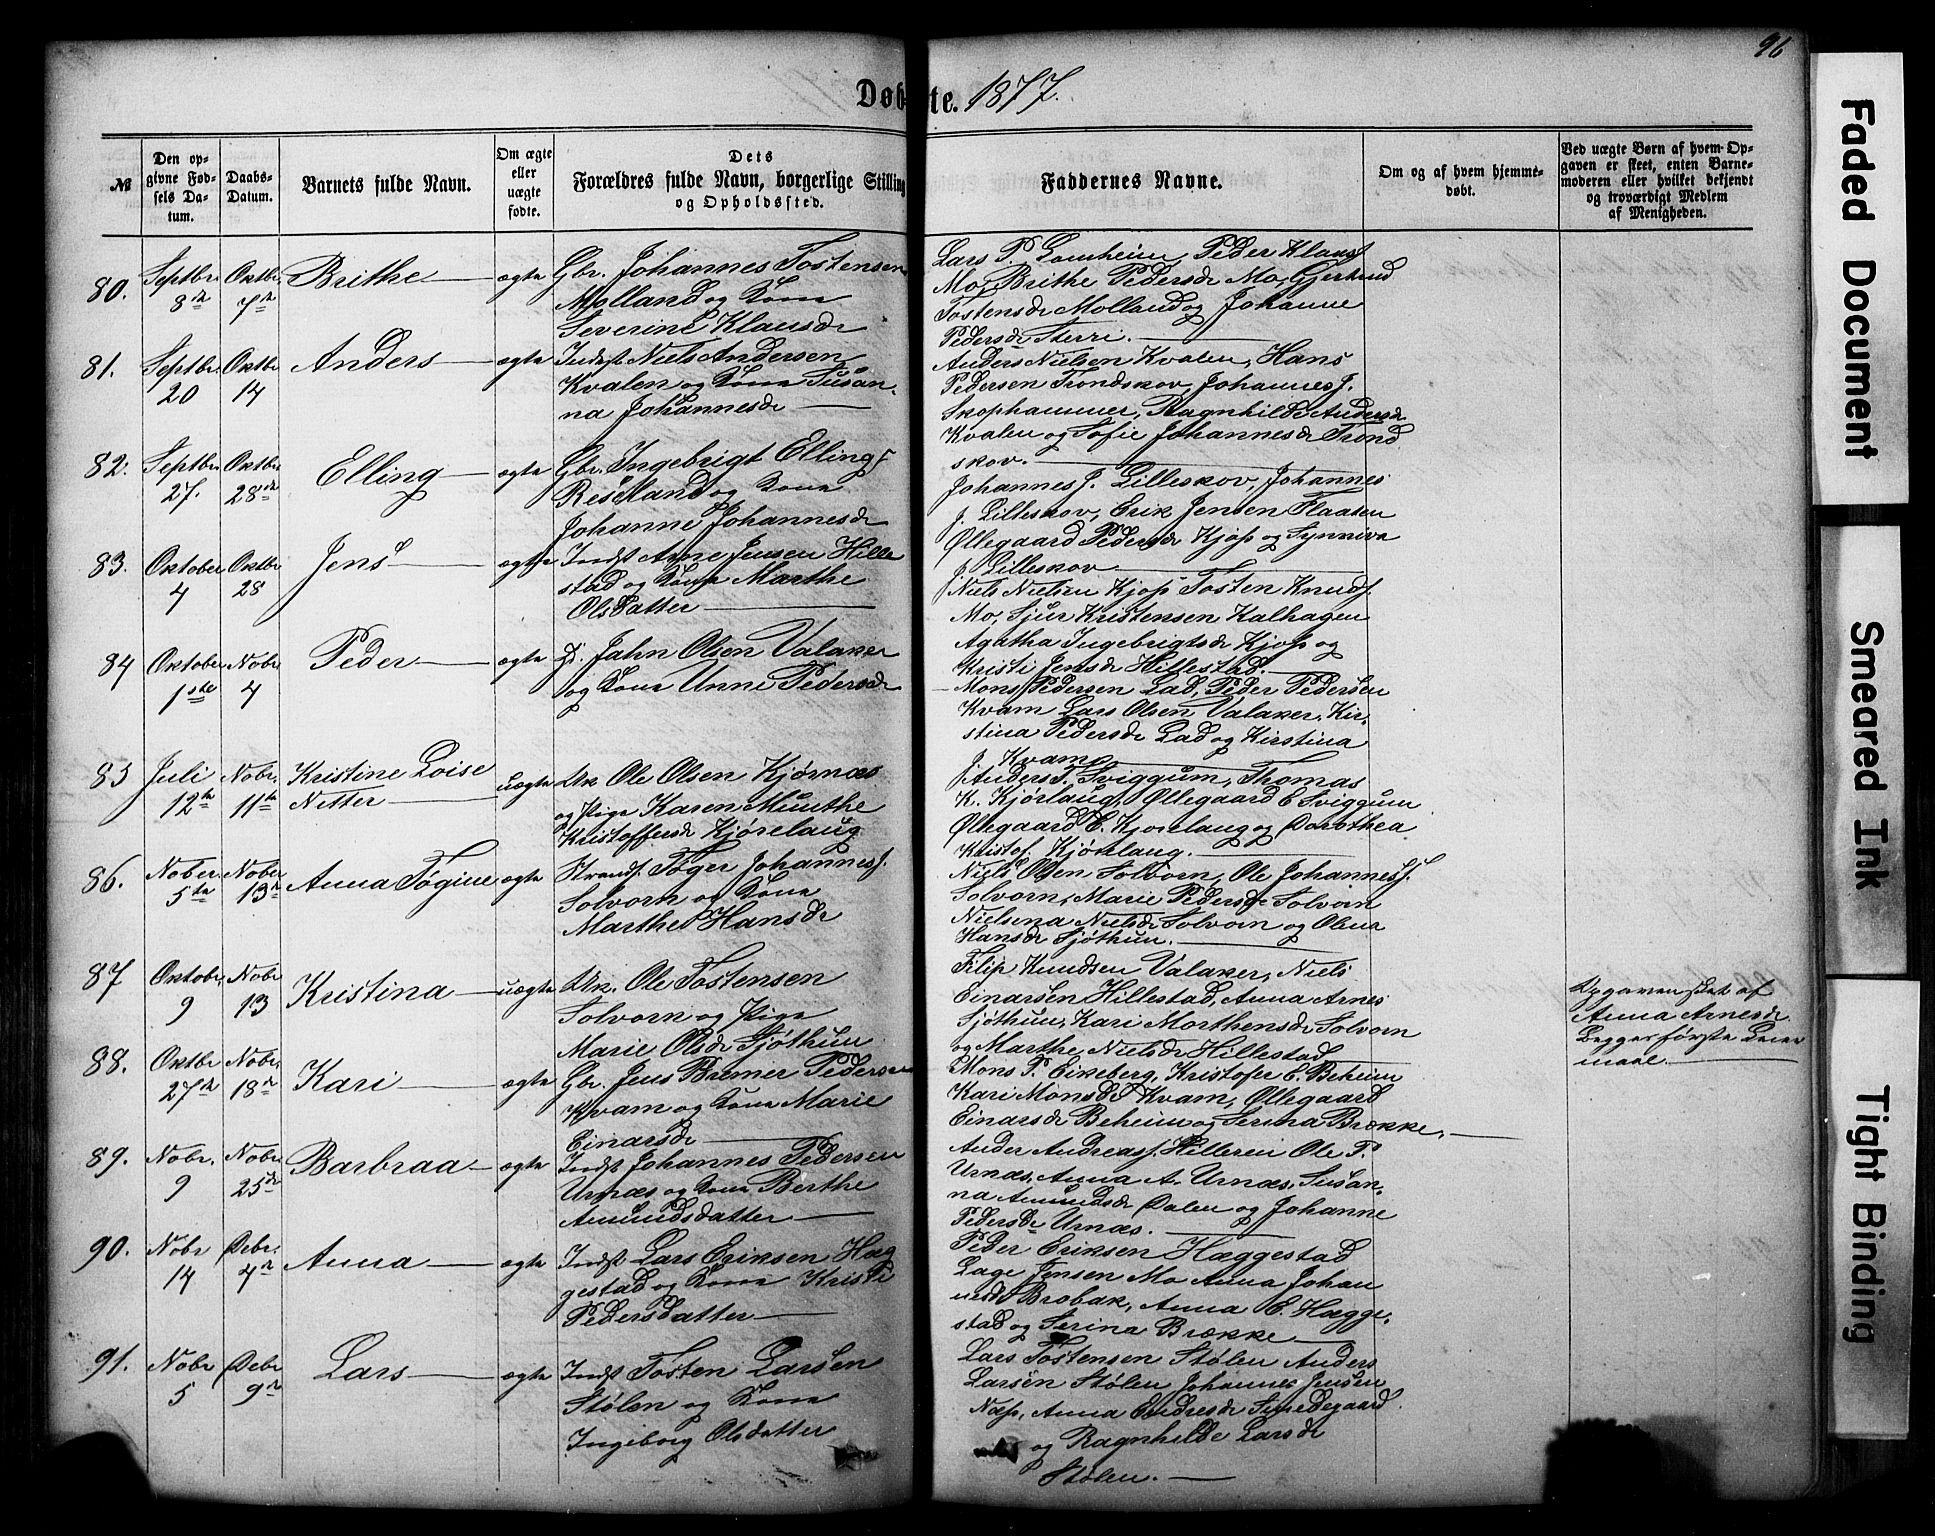 96
Døbte. 1877.
№
Den opgivne Fødsels Datum.
Daabs-Datum.
Barnets fulde Navn.
Om ægte eller uægte fødte.
Dets Forældres fulde Navn, borgerlige Stilling og Opholdssted.
Faddernes Navne.
Om og af hvem hjemmedøbt.
Ved uægte Børn af hvem Opgaven er skeet, enten Barnemoderen eller hvilket bekjendt og troværdigt Medlem af Menigheden.
80. Septbr. 8de Oktbr. 7de Brithe ægte Gbr. Johannes Tostensen
Molland og Kone
Severine Klausdr
Lars P. Lomheim, Peder Klaus
Mo, Brithe Pedersdr Mo, Gjertrud
Tostensdr Molland og Johanne
Pedersdr Sterri.
81. Septbr. 20 Oktbr 14 Anders ægte Indst. Niels Andersen
Kvalen og Kone Susan-
na Johannesdr
Anders Nielsen Kvalen, Hans
Pedersen Trondskov, Johannes J.
Skophammer, Ragnhilde Andersdr
Kvalen og Sofie Johannesdr Trond
skov.
82. Septbr 27. Oktbr 28de Elling ægte Gbr. Ingebrigt Ellings
Resland og Kone
Johanne Johannesdr
Johannes J. Lilleskov, Johannes
J. Lilleskov, Erik Jensen Flaaten
Øllegaard Pedersdr Kjos og Synniva
J. Lilleskov
83. Oktober 4 Oktbr 28 Jens ægte Indst Arne Jensen Hille
stad og Kone Marthe
Olsdatter
Niels Nielsen Kjos Tosten Knuds.
Mo, Sjur Kristensen Kalhagen
Agatha Ingebrigtsdr Kjos og
Kristi Jensdr Hillestad.
84 Oktober 1ste Nobr 4 Peder ægte Jahn Olsen Valaker
og Kone Unne Pedersdr
Mons Pedersen Lad, Peder Pedersen
Kvam Lars Olsen Valaker, Kir-
stina Pedersdr Lad og Kirstina
J. Kvam
85 Juli 12te Nobr. 11te Kristine Loise
Netter uægte Uk Ole Olsen Kjørnæs
og Pige Karen Munthe
Kristoffersdr Kjørelaug
Anders T. Sviggum, Thomas
K. Kjörlaug, Øllegaard E Sviggum
Øllegaard E. Kjorelaug og Dorothea
Kristof. Kjörlaug.
86. Nober. 5te Nober 13d Anna Togine ægte Strands. Toger Johanness.
Solvorn og Kone
Marthe Hansdr
Niels Olsen Solvorn, Ole Johanness.
Solvorn, Marie Pedersdr Solvorn
Nielsena Nielsdr Solvorn og Olena
Hansdr Sjöthun.
87 Oktobr. 9 Nobr 13 Kristina uægte Uk. Ole Tostensen
Solvorn og Pige
Marie Olsdr Sjöthun
Filip Knudsen Valaker, Niels
Einarsen Hillestad, Anna Arnes
Sjöthun, Kari Morthensdr Solvorn
og Marthe Nielsdr Hillestad
Opgaven skeet af
Anna Arnesdr.
Begges förste Leier
maal.
88. Oktbr 27de Nobr. 18de Kari ægte Gbr. Jens Bremer Pedersen
Kvam og Kone Marie
Einarsdr
Mons P. Eikeberg, Kristofer E. Beheim
Kari Monsdr Kvam, Øllegaard
Einarsdr Beheim og Serina Brække.
89. Nobr. 9 Nobr. 25de Barbraa ægte Indst Johannes Pedersen
Urnæs og Kone Berthe
Amundsdatter
Ander Andreass. Hilleren Ole P.
Urnæs, Anna A. Urnæs, Susan-
na Amundsdr Dalen og Johanne
Pedersdr Urnæs.
90. Nobr 14 Debr. Anna ægte Indst Lars Eriksen Hæg
gestad og Kone Kristi
Pedersdatter
Peder Eriksen Hæggestad
Lage Jensen Mo Anna Johan
nesdr Brobak, Anna E. Hægge-
stad og Serina Brække
91. Nobr 5 Debr 9de Lars ægte Indst Tosten Larsen
Stølen og Kone
Ingeborg Olsdatter
Lars Tostensen Stølen Anders
Larsen Stølen Johannes Jensen
Næss, Anna Endresdr Smedegaard
og Ragnhilde Larsdr
Stølen.
Faded Document
Smeared Ink
Tight Binding